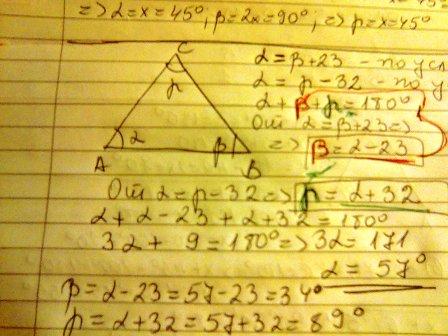 => α = x = 45°; β = 2x = 90°; => γ = x = 45°
C
γ
α
β
A
B
α = β + 23 - по усл
α = γ - 32 - по у
α + β + γ = 180°
От α = β + 23 =>
=> β = α - 23
От α = γ - 32 => γ = α + 32
α + α - 23 + α + 32 = 180°
3α + 9 = 180° => 3α = 171
α = 57°
β = α - 23 = 57 - 23 = 34°
γ = α + 32 = 57 + 32 = 89°